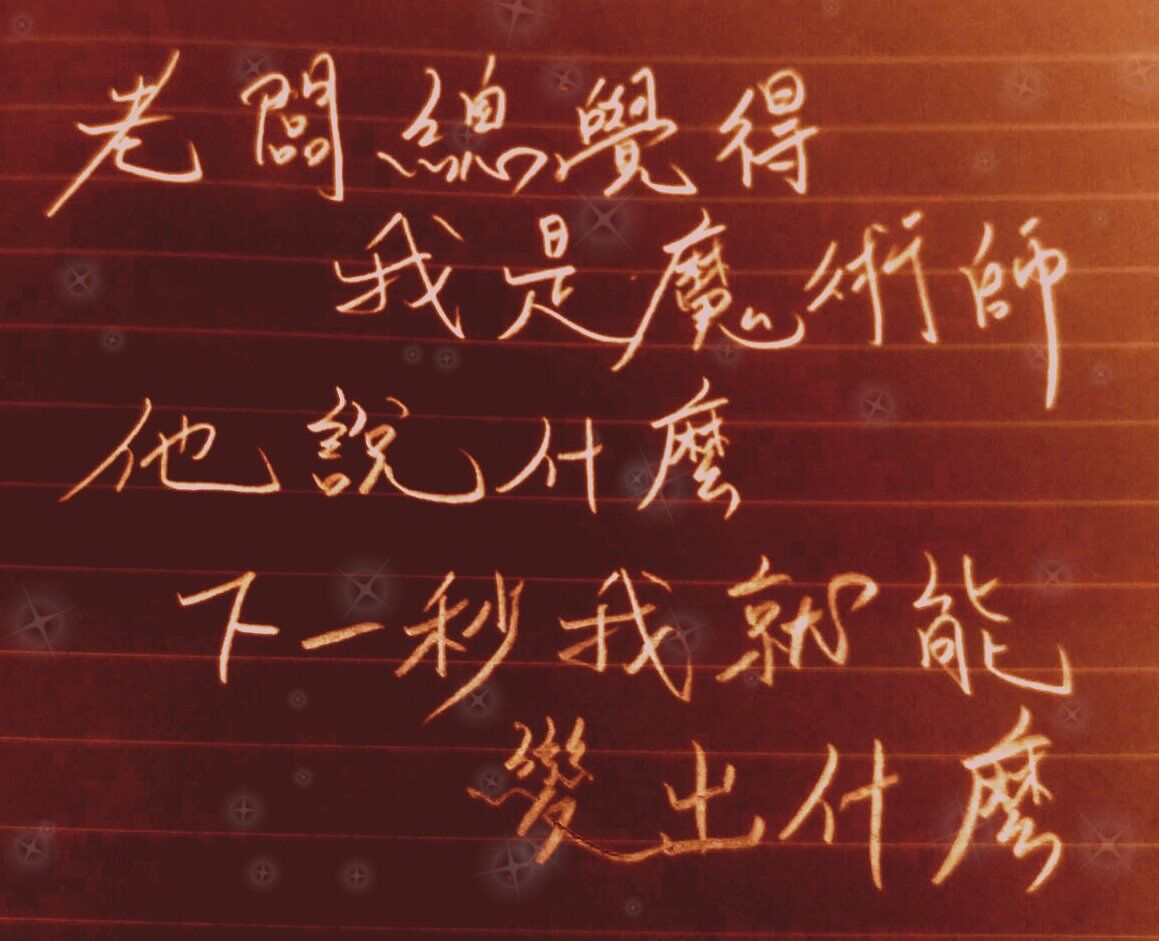 老闆總覺得
我是魔術師
他說什麼
下一秒我就能
變出什麼